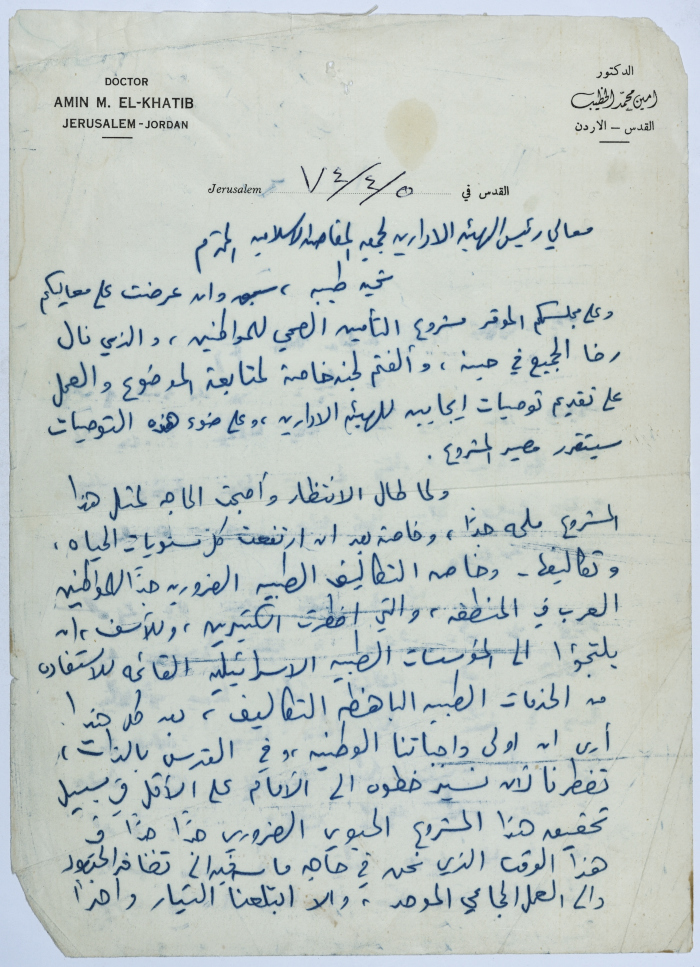 DOCTOR
AMIN M. EL-KHATIB
JERUSALEM - JORDAN
الدكتور
امين محمد الخطيب
القدس – الاردن
Jerusalem ٧٤/٤/٥ القدس في
معالي رئيس الهيئه الاداريه لجمعيه المقاصد الاسلاميه المحترم
تحيه طيبه ، سبق وان عرضت على معاليكم
وعلى مجلسكم الموقر مشروع التأمين الصحي للمواطنين ، والذي نال
رضا الجميع في حينه ، وألفتم لجنه خاصة لمتابعة الموضوع والعمل
على تقديم توصيات إيجابيه للهيئه الاداريه ، وعلى ضوء هذه التوصيات
سيتقرر مصير المشروع .
ولما طال الانتظار وأصبحت الحاجه لمثل هذا
المشروع ملحه جدًا ، وخاصة بعد ان ارتفعت كل مستويات الحياه ،
وتكاليفها - وخاصه التكاليف الطبيه الضروريه جدًا للمواطنين
العرب في المنطقه ، والتي اضطرت الكثيرين ، وللأسف ، ان
يلتجؤا الى المؤسسات الطبيه الاسرائيليه القائمه للاستفاده
من الخدمات الطبيه الباهظه التكاليف ، بعد كل هذا
أرى ان اولى واجباتنا الوطنيه ، وفي القدس بالذات ،
تضطرنا لأن نسير خطوه الى الأمام على الأقل في سبيل
تحقيق هذا المشروع الحيوي الضروري جدًا جدًا في
هذا الوقت الذي نحن في حاجه ماسه الى تضافر الجهود
والى العمل الجماعي الموحد ، والا ابتلعنا التيار واحدًا